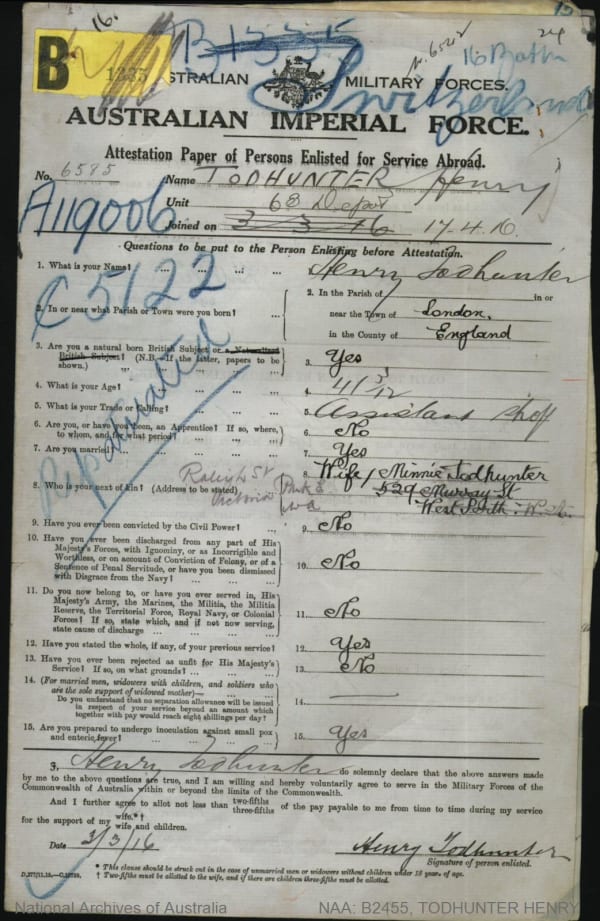 16.
B 1335
N. 6522
16 Batn
24
B
1335
AUSTRALIAN MILITARY FORCES.
Switzerland
AUSTRALIAN IMPERIAL FORCE.
Attestation Paper of Persons Enlisted for Service Abroad.
No. 6595 Name TODHUNTER Henry
Unit 68 Depot
A119006
Joined on 3/3/16 17.4.16.
Questions to be put to the Person Enlisting before Attestation.
C 5122
Repatriated
1. What is your Name? ... ... ... ... 1. Henry Todhunter
2. In or near what Parish or Town were you born? ... 2. In the Parish of in or
near the Town of London,
in the County of England
3. Are you a natural born British Subject or a Naturalized
British Subject? (N.B.—If the latter, papers to be
shown.) 3. Yes
4. What is your Age? ... ... ... ... 4. 41 5/12
5. What is your Trade or Calling? ... ... 5. Assistant Chef
6. Are you, or have you been, an Apprentice? If so, where,
to whom, and for what period? 6. No
7. Are you married? ... ... ... ... 7. Yes
8. Who is your next of kin? (Address to be stated) 8. Wife / Minnie Todhunter
529 Murray St
West Perth. W.A.
Raleigh St
Victoria Park
WA
9. Have you ever been convicted by the Civil Power? ... 9. No
10. Have you ever been discharged from any part of His
Majesty's Forces, with Ignominy, or as Incorrigible and
Worthless, or on account of Conviction of Felony, or of a
Sentence of Penal Servitude, or have you been dismissed
with Disgrace from the Navy? ... ... ... 10. No
11. Do you now belong to, or have you ever served in, His
Majesty's Army, the Marines, the Militia, the Militia
Reserve, the Territorial Force, Royal Navy, or Colonial
Forces? If so, state which, and if not now serving,
state cause of discharge ... ... ... 11. No
12. Have you stated the whole, if any, of your previous service? 12. Yes
13. Have you ever been rejected as unfit for His Majesty's
Service? If so, on what grounds? ... ... 13. No
14. (For married men, widowers with children, and soldiers who
are the sole support of widowed mother)—
Do you understand that no separation allowance will be issued
in respect of your service beyond an amount which
together with pay would reach eight shillings per day? 14. —
15. Are you prepared to undergo inoculation against small pox
and enteric fever? ... ... ... ... 15. Yes
I, Henry Todhunter do solemnly declare that the above answers made
by me to the above questions are true, and I am willing and hereby voluntarily agree to serve in the Military Forces of the
Commonwealth of Australia within or beyond the limits of the Commonwealth.
And I further agree to allot not less than two-fifths
three-fifths of the pay payable to me from time to time during my service
for the support of my wife.*†
wife and children.
Date 3/3/16 Henry Todhunter
Signature of person enlisted.
* This clause should be struck out in the case of unmarried men or widowers without children under 18 years of age.
† Two-fifths must be allotted to the wife, and if there are children three-fifths must be allotted.
National Archives of Australia NAA: B2455, TODHUNTER HENRY